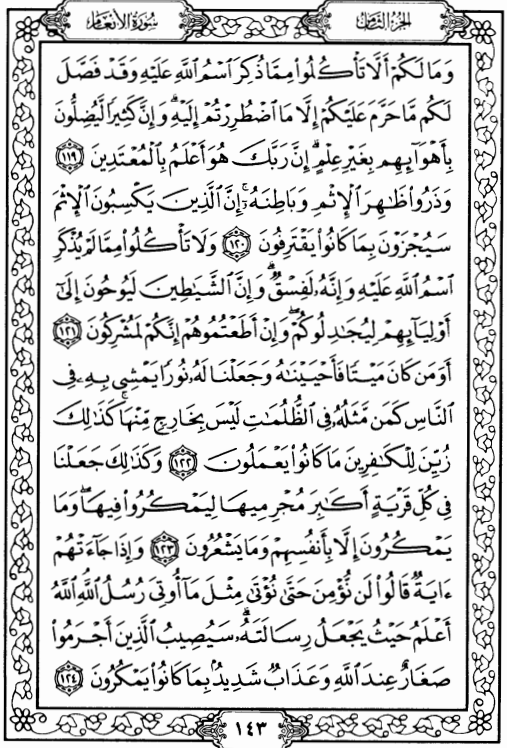 سُورَةُ الأَنْعَامِ الجُزْءُ الثَّامِنُ
وَمَا لَكُمْ أَلَّا تَأْكُلُوا۟ مِمَّا ذُكِرَ ٱسْمُ ٱللَّهِ عَلَيْهِ وَقَدْ فَصَّلَ
لَكُم مَّا حَرَّمَ عَلَيْكُمْ إِلَّا مَا ٱضْطُرِرْتُمْ إِلَيْهِ ۗ وَإِنَّ كَثِيرًا لَّيُضِلُّونَ
بِأَهْوَآئِهِم بِغَيْرِ عِلْمٍ ۗ إِنَّ رَبَّكَ هُوَ أَعْلَمُ بِٱلْمُعْتَدِينَ ١١٩
وَذَرُوا۟ ظَٰهِرَ ٱلْإِثْمِ وَبَاطِنَهُۥٓ ۚ إِنَّ ٱلَّذِينَ يَكْسِبُونَ ٱلْإِثْمَ
سَيُجْزَوْنَ بِمَا كَانُوا۟ يَقْتَرِفُونَ ١٢٠ وَلَا تَأْكُلُوا۟ مِمَّا لَمْ يُذْكَرِ
ٱسْمُ ٱللَّهِ عَلَيْهِ وَإِنَّهُۥ لَفِسْقٌ ۗ وَإِنَّ ٱلشَّيَٰطِينَ لَيُوحُونَ إِلَىٰٓ
أَوْلِيَآئِهِمْ لِيُجَٰدِلُوكُمْ ۖ وَإِنْ أَطَعْتُمُوهُمْ إِنَّكُمْ لَمُشْرِكُونَ ١٢١
أَوَمَن كَانَ مَيْتًا فَأَحْيَيْنَٰهُ وَجَعَلْنَا لَهُۥ نُورًا يَمْشِى بِهِۦ فِى
ٱلنَّاسِ كَمَن مَّثَلُهُۥ فِى ٱلظُّلُمَٰتِ لَيْسَ بِخَارِجٍ مِّنْهَا ۚ كَذَٰلِكَ
زُيِّنَ لِلْكَٰفِرِينَ مَا كَانُوا۟ يَعْمَلُونَ ١٢٢ وَكَذَٰلِكَ جَعَلْنَا
فِى كُلِّ قَرْيَةٍ أَكَٰبِرَ مُجْرِمِيهَا لِيَمْكُرُوا۟ فِيهَا ۖ وَمَا
يَمْكُرُونَ إِلَّا بِأَنفُسِهِمْ وَمَا يَشْعُرُونَ ١٢٣ وَإِذَا جَآءَتْهُمْ
ءَايَةٌ قَالُوا۟ لَن نُّؤْمِنَ حَتَّىٰ نُؤْتَىٰ مِثْلَ مَآ أُوتِىَ رُسُلُ ٱللَّهِ ۘ ٱللَّهُ
أَعْلَمُ حَيْثُ يَجْعَلُ رِسَالَتَهُۥ ۗ سَيُصِيبُ ٱلَّذِينَ أَجْرَمُوا۟
صَغَارٌ عِندَ ٱللَّهِ وَعَذَابٌ شَدِيدٌۢ بِمَا كَانُوا۟ يَمْكُرُونَ ١٢٤
١٤٣